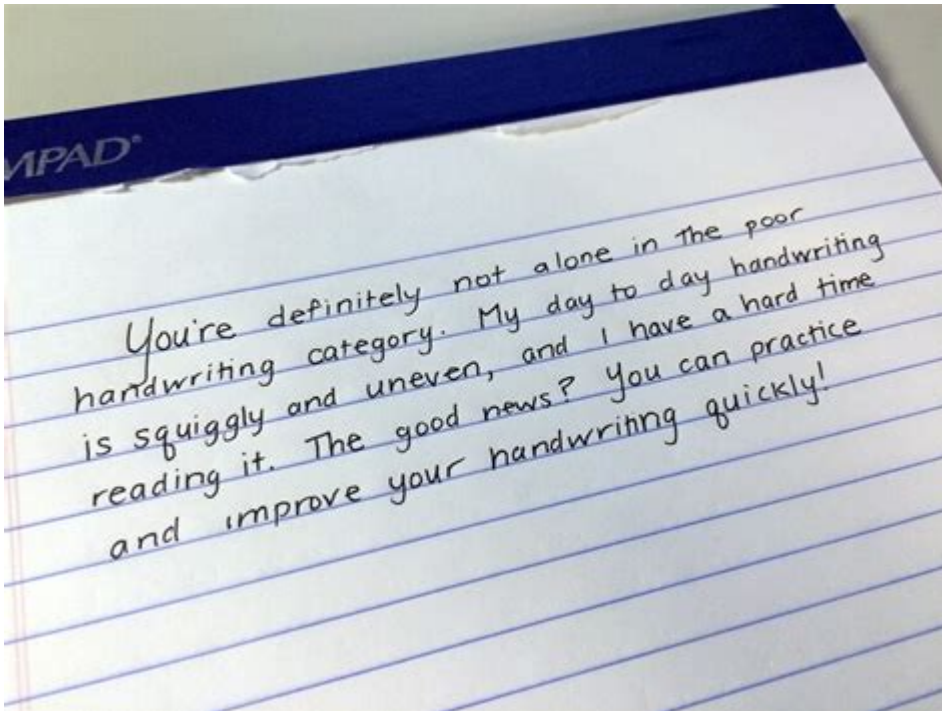 MPAD®
You're definitely not alone in the poor
handwriting category. My day to day handwriting
is squiggly and uneven, and I have a hard time
reading it. The good news? You can practice
and improve your handwriting quickly!